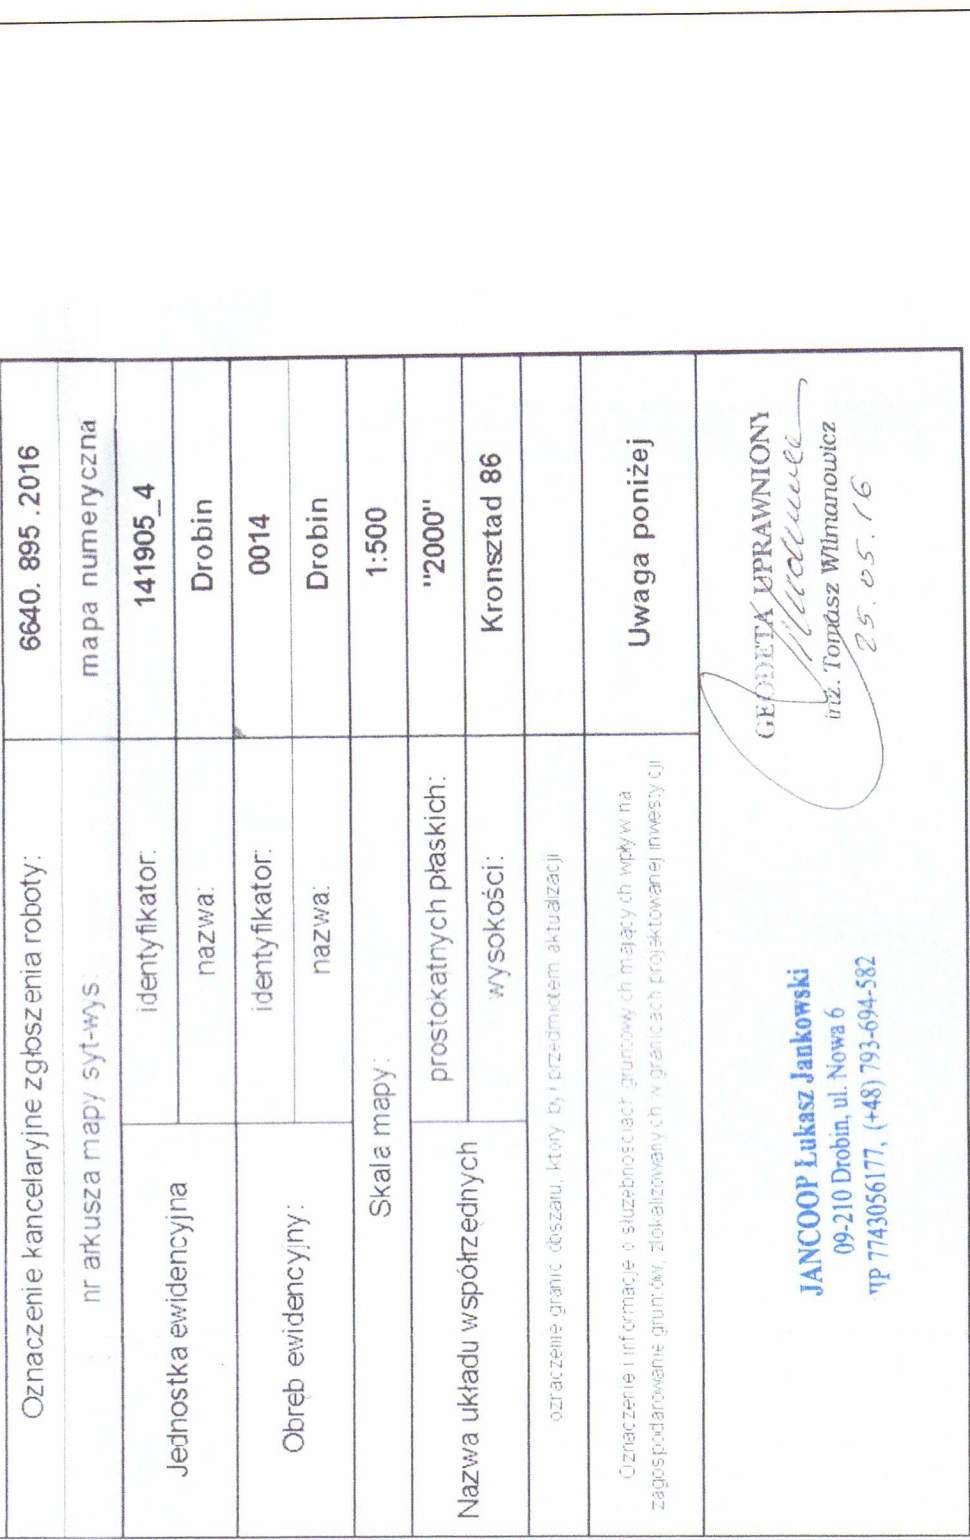 Oznaczenie kancelaryjne zgłoszenia roboty: 6640. 895 .2016
nr arkusza mapy syt-wys. mapa numeryczna
Jednostka ewidencyjna
identyfikator: 141905_4
nazwa: Drobin
Obręb ewidencyjny:
identyfikator: 0014
nazwa: Drobin
Skala mapy: 1:500
Nazwa układu współrzędnych
prostokatnych płaskich: "2000"
wysokości: Kronsztad 86
oznaczenie granic obszaru, który był przedmiotem aktualizacji
Oznaczenie i informacje o służebnościach gruntowych mających wpływ na
zagospodarowanie gruntów, zlokalizowanych w granicach projektowanej inwestycji
Uwaga poniżej
JANCOOP Łukasz Jankowski
09-210 Drobin, ul. Nowa 6
IP 7743056177, (+48) 793-694-582
GEODETA UPRAWNIONY
inż. Tomasz Wilmanowicz
25.05.16